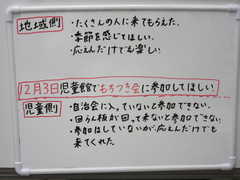 地域側
・たくさんの人に来てもらえた。
・季節を感じてほしい。
・応えんだけでも楽しい
12月3日児童館でもちつき会に参加してほしい
児童側
・自治会に入っていないと参加できない。
・回らん板が回って来ないと参加できない。
・参加はしていないが応えんだけでも
来てくれた。